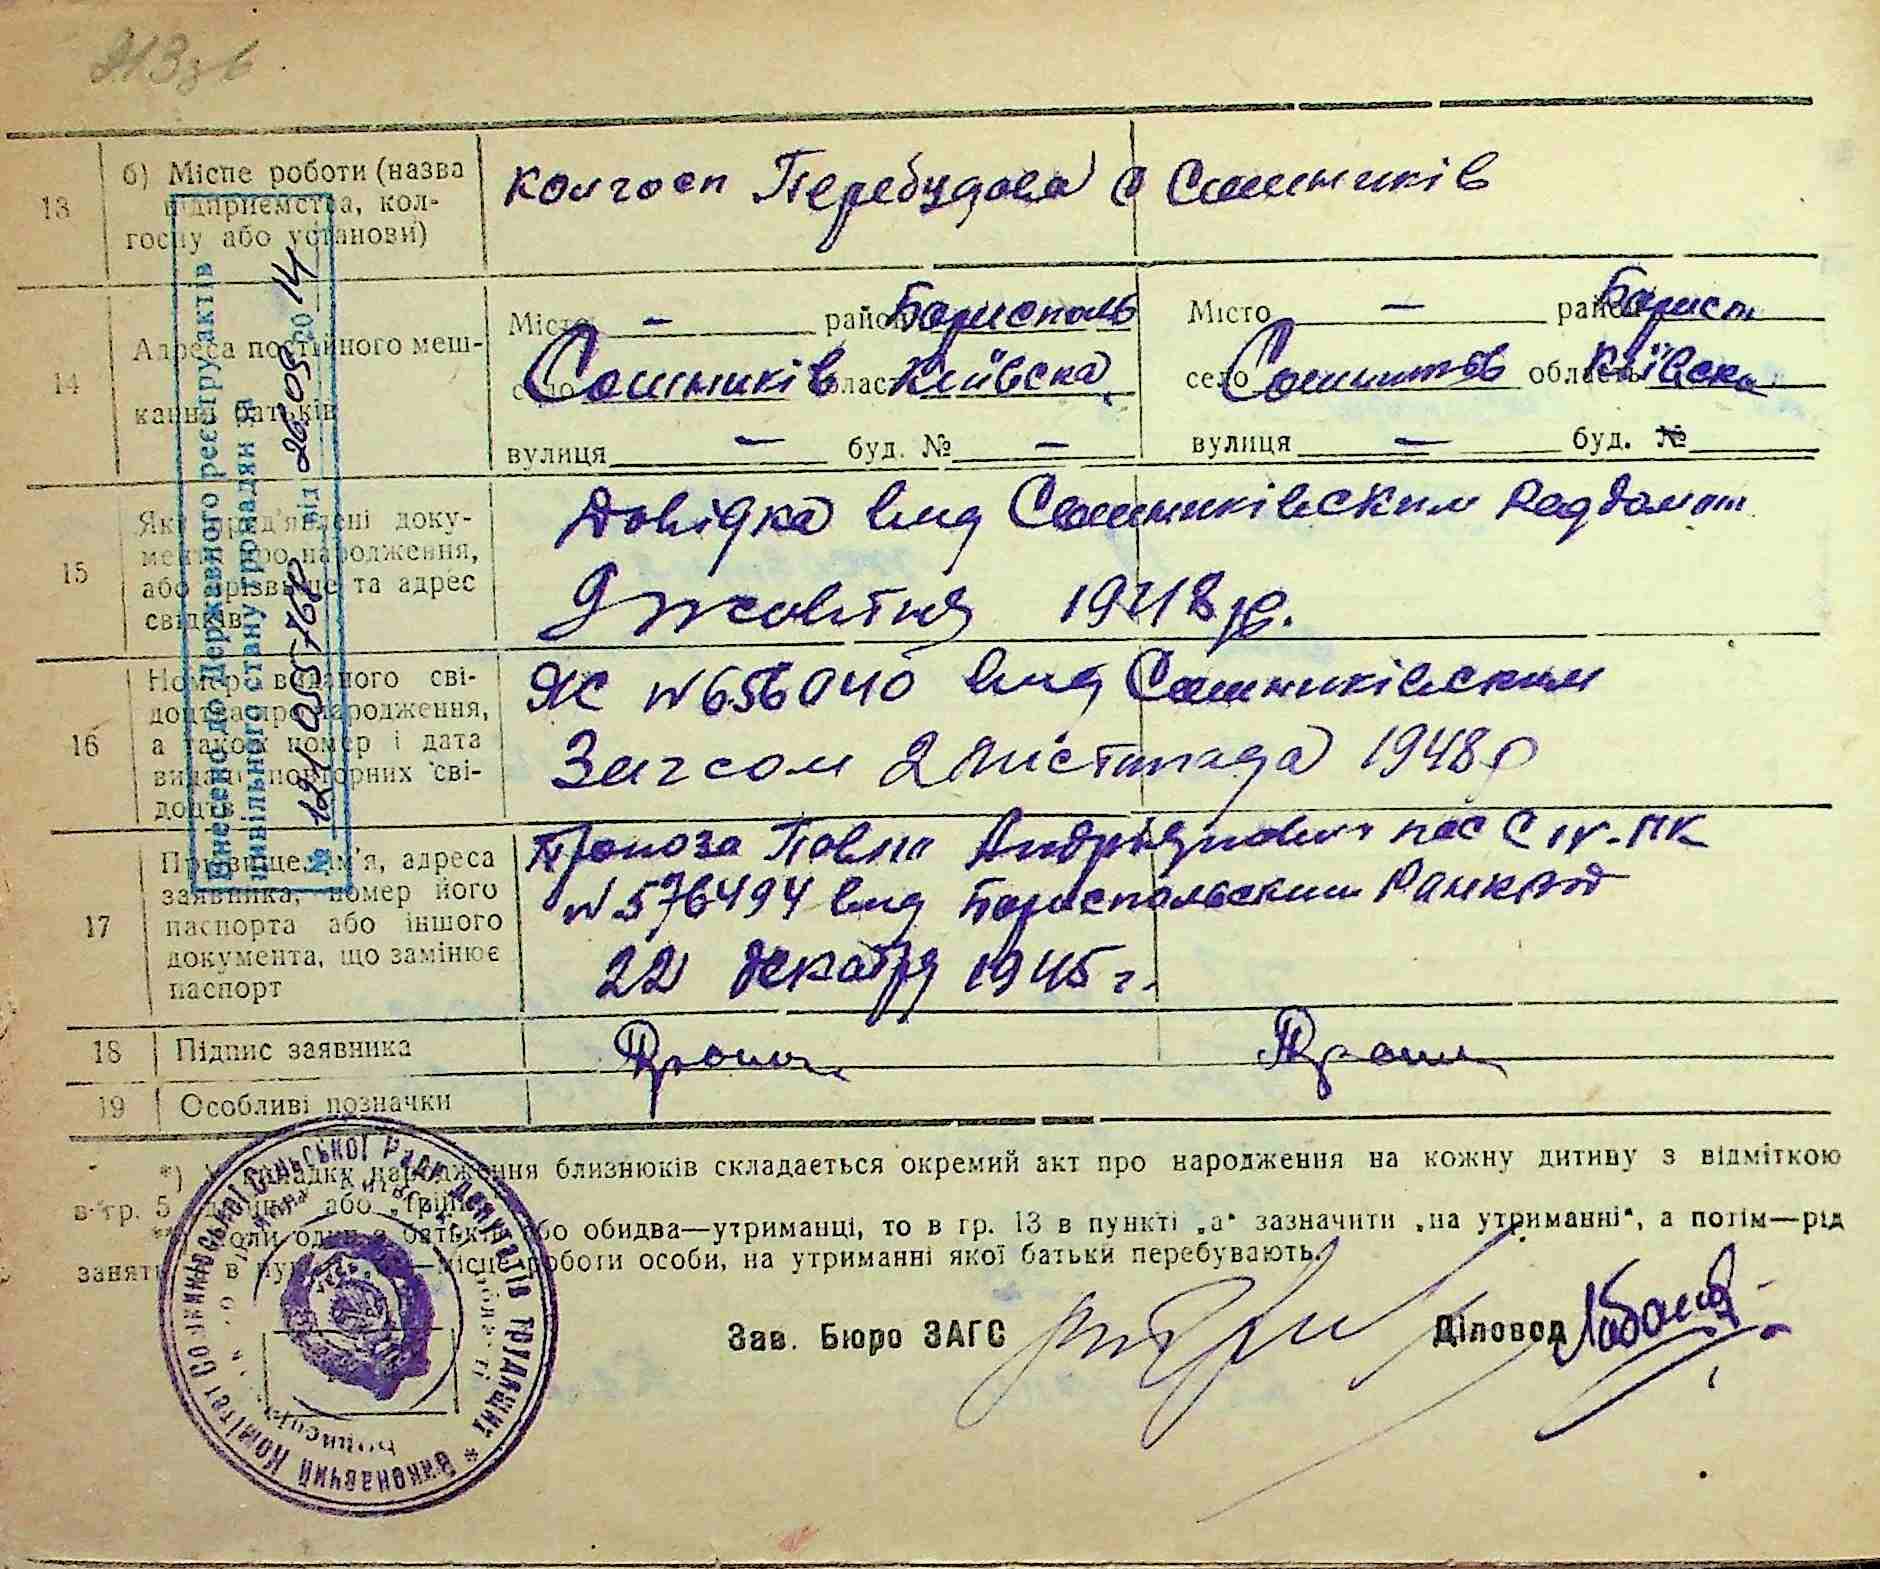 213зв
13 б) Місце роботи (назва підприємства, колгоспу або установи)
колгосп Перебудова с Сошників
14 Адреса постійного мешкання батьків
Місто — район Бориспіль
село Сошників область Київська
вулиця — буд. № —
Місто — район Борисп
село Сошників область Київська
вулиця — буд. №
15 Які пред'явлені документи про народження, або прізвище та адрес свідків
Довідка вид Сошниківским
9 жовтня 1948 р.
16 Номер виданого свідоцтва про народження, а також номер і дата видачі повторних свідоцтв
ЯС № 656040 вид Сошниківским
Загсом 2 листопада 1948 р
17 Прізвище, ім'я, адреса заявника, номер його паспорта або іншого документа, що замінює паспорт
Павло пас С IV-ПК
№ 576494 вид Бориспольским
22 декабря 1945 г.
18 Підпис заявника
19 Особливі позначки
*) У випадку народження близнюків складається окремий акт про народження на кожну дитину з відміткою
в гр. 5 „двійня" або „трійня".
**) Коли один з батьків або обидва—утриманці, то в гр. 13 в пункті „а" зазначити „на утриманні", а потім—рід
заняття, в пункті —місце роботи особи, на утриманні якої батьки перебувають.
Зав. Бюро ЗАГС
Діловод
Внесено до Державного реєстру актів
цивільного стану громадян за
№ 121 від 26.05 2014
Виконавчий Комітет Сошниківської Сільської Ради депутатів трудящих *